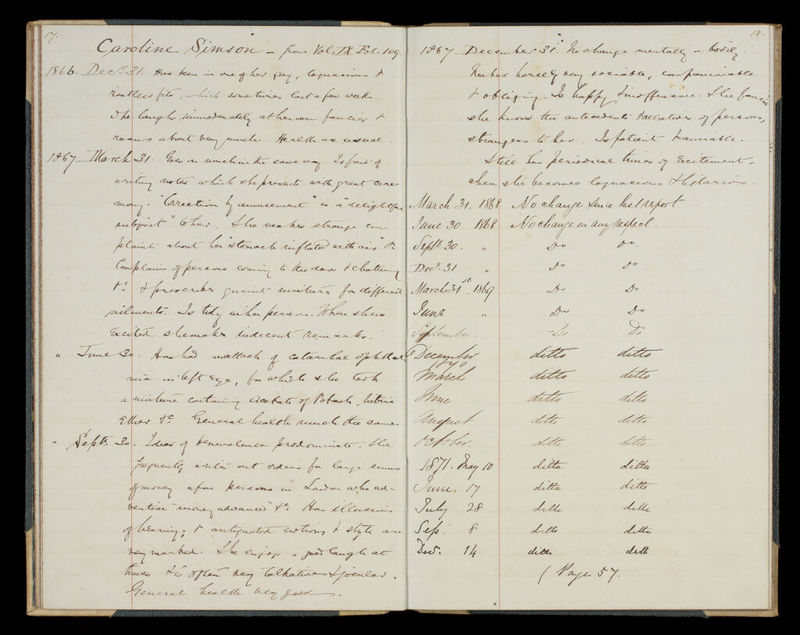 17.
Caroline Simson – from Vol. IX Fol. 109
1866. Decr. 31. Has been in one of her gay, loquacious &
restless fits, which sometimes last a few weeks.
She laughs immoderately at her own fancies &
roams about very much. Health as usual.
1867 March 31. Goes on much in the same way. Is fond of
writing notes which she presents with great cere-
mony. "Correction by amusement" is a "delightful
subject" to her. She makes strange com-
plaints about her stomach inflated with air &c
Complains of persons coming to the door & chattering
&c & prescribes mixtures for different
ailments. Is tidy in her person. When she is
excited she makes indecent remarks.
" June 30. Has had an attack of catarrhal ophthal
mia in left eye, for which she took
a mixture containing Acetate of Potash, Nitric
Ether &c. General health much the same.
" Septr. 30. Ideas of benevolence predominate. She
frequently writes out orders for large sums
of money upon persons in London who ad-
vertise "money advanced" &c. Has illusions
of hearing; & antiquated notions & style are
very marked. She enjoys a good laugh at
times & is often very talkative & jocular.
General health very good.
18.
1867 December 31. No change mentally or bodily.
Makes herself very sociable, companionable
& obliging. Is happy & inoffensive. She fancies
she knows the antecedents & relatives of persons,
strangers to her. Is patient & amiable.
Still has periodical times of excitement,
when she becomes loquacious & hilarious.
March 31. 1868 No change since last report
June 30. 1868 No change in any respect.
Septr 30. " Do Do
Decr 31 " Do Do
March 31st. 1869 Do Do
June " Do Do
September Do Do
December ditto ditto
1870
March ditto ditto
June ditto ditto
August ditto ditto
October ditto ditto
1871. May 10 ditto ditto
June 17 ditto ditto
July 28 ditto ditto
Sep. 8 ditto ditto
Dec. 14 ditto ditto
( Page 57.